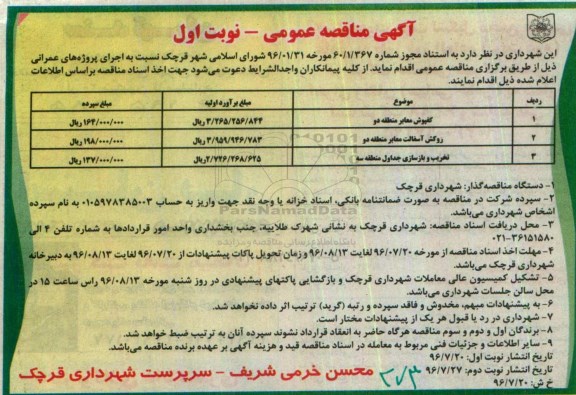 آگهی مناقصه عمومی – نوبت اول
این شهرداری در نظر دارد به استناد مجوز شماره ۶۰/۱/۳۶۷ مورخه ۹۶/۰۱/۳۱ شورای اسلامی شهر قرچک نسبت به اجرای پروژه‌های عمرانی
ذیل از طریق برگزاری مناقصه عمومی اقدام نماید. از کلیه پیمانکاران واجدالشرایط دعوت می‌شود جهت اخذ اسناد مناقصه براساس اطلاعات
اعلام شده ذیل اقدام نمایند.
ردیف موضوع مبلغ برآورد اولیه مبلغ سپرده
۱ کفپوش معابر منطقه دو ۳/۲۶۵/۲۵۶/۸۴۴ ریال ۱۶۴/۰۰۰/۰۰۰ ریال
۲ روکش آسفالت معابر منطقه دو ۳/۹۵۹/۹۴۶/۷۸۳ ریال ۱۹۸/۰۰۰/۰۰۰ ریال
۳ تخریب و بازسازی جداول منطقه سه ۲/۷۲۶/۲۶۸/۶۲۵ ریال ۱۳۷/۰۰۰/۰۰۰ ریال
۱- دستگاه مناقصه‌گذار: شهرداری قرچک
۲- سپرده شرکت در مناقصه به صورت ضمانتنامه بانکی، اسناد خزانه یا وجه نقد جهت واریز به حساب ۰۱۰۵۹۷۸۳۸۵۰۰۳ به نام سپرده
اشخاص شهرداری می‌باشد.
۳- محل دریافت اسناد مناقصه: شهرداری قرچک به نشانی شهرک طلاییه، جنب بخشداری واحد امور قراردادها به شماره تلفن ۴ الی
۰۲۱-۳۶۱۵۱۵۸۰
۴- مهلت اخذ اسناد مناقصه از مورخه ۹۶/۰۷/۲۰ لغایت ۹۶/۰۸/۱۳ و زمان تحویل پاکات پیشنهادات از ۹۶/۰۷/۲۰ لغایت ۹۶/۰۸/۱۳ به دبیرخانه
شهرداری قرچک می‌باشد.
۵- تشکیل کمیسیون عالی معاملات شهرداری قرچک و بازگشایی پاکتهای پیشنهادی در روز شنبه مورخه ۹۶/۰۸/۱۳ راس ساعت ۱۵ در
محل سالن جلسات شهرداری می‌باشد.
۶- به پیشنهادات مبهم، مخدوش و فاقد سپرده و رتبه (گرید) ترتیب اثر داده نخواهد شد.
۷- شهرداری در رد یا قبول هر یک از پیشنهادات مختار است.
۸- برندگان اول و دوم و سوم مناقصه هرگاه حاضر به انعقاد قرارداد نشوند سپرده آنان به ترتیب ضبط خواهد شد.
۹- سایر اطلاعات و جزئیات فنی مربوط به معامله در اسناد مناقصه قید و هزینه آگهی بر عهده برنده مناقصه می‌باشد.
تاریخ انتشار نوبت اول: ۹۶/۷/۲۰
تاریخ انتشار نوبت دوم: ۹۶/۷/۲۷
خ ش: ۹۶/۷/۲۰
محسن خرمی شریف – سرپرست شهرداری قرچک
ParsNamadData